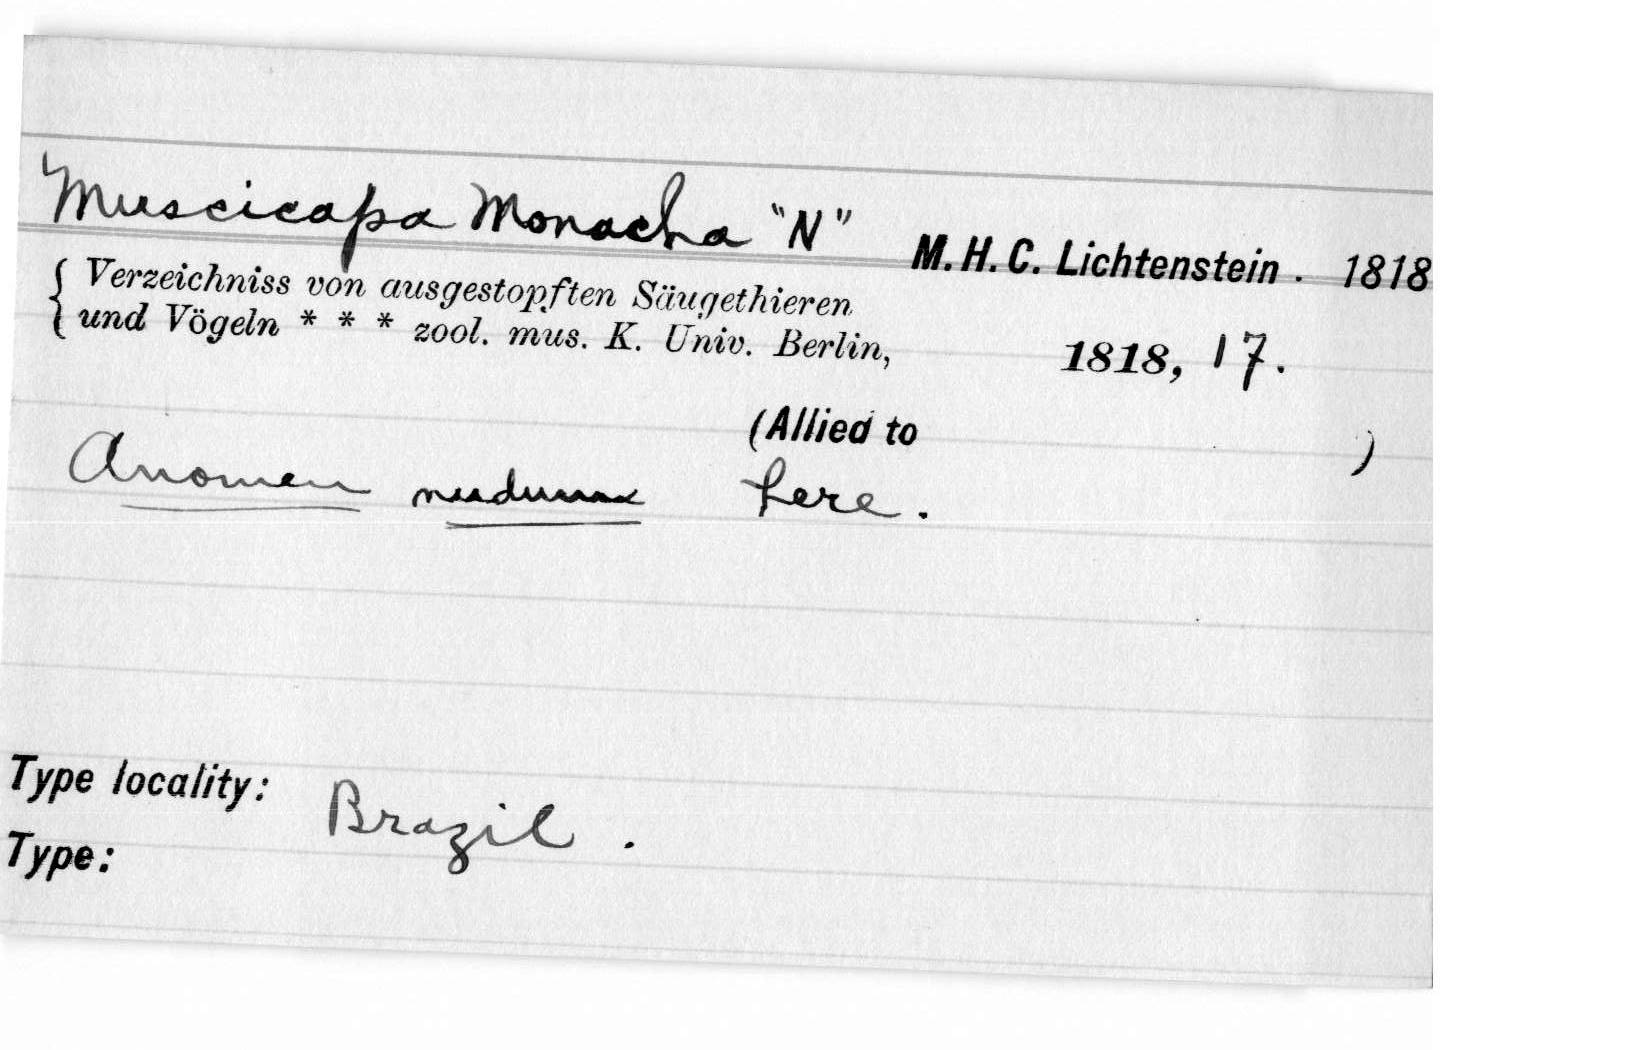 Muscicapa Monacha "N" M. H. C. Lichtenstein. 1818
{ Verzeichniss von ausgestopften Säugethieren
und Vögeln * * * zool. mus. K. Univ. Berlin, 1818, 17.
(Allied to )
Anomen nudum here.
Type locality: Brazil.
Type: